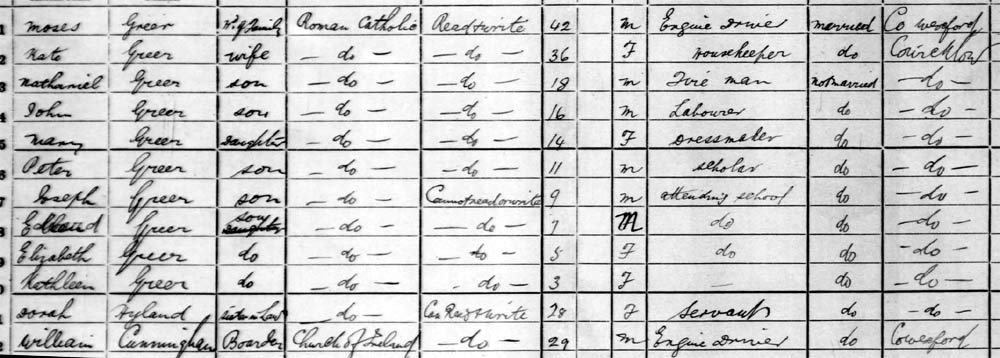 1 Moses Greer Hd of Family Roman Catholic Read & write 42 M Engine Driver Married Co Wexford
2 Kate Greer wife - do - - do - 36 F Housekeeper do Co Wicklow
3 Nathaniel Greer son - do - - do - 18 M Fire man not married - do -
4 John Greer son - do - - do - 16 M Labourer do - do -
5 Mary Greer daughter - do - - do - 14 F Dressmaker do - do -
6 Peter Greer son - do - - do - 11 M scholar do - do -
7 Joseph Greer son - do - Cannot read or write 9 M attending school do - do -
8 Edward Greer son daughter - do - - do - 7 M do do - do -
9 Elizabeth Greer do - do - - do - 5 F do do - do -
0 Kathleen Greer do - do - - do - 3 F — do - do -
1 Sarah Hyland sister in Law - do - Can Read & write 28 F Servant do - do -
2 William Cunningham Boarder Church of Ireland - do - 29 M Engine Driver do Co Wexford